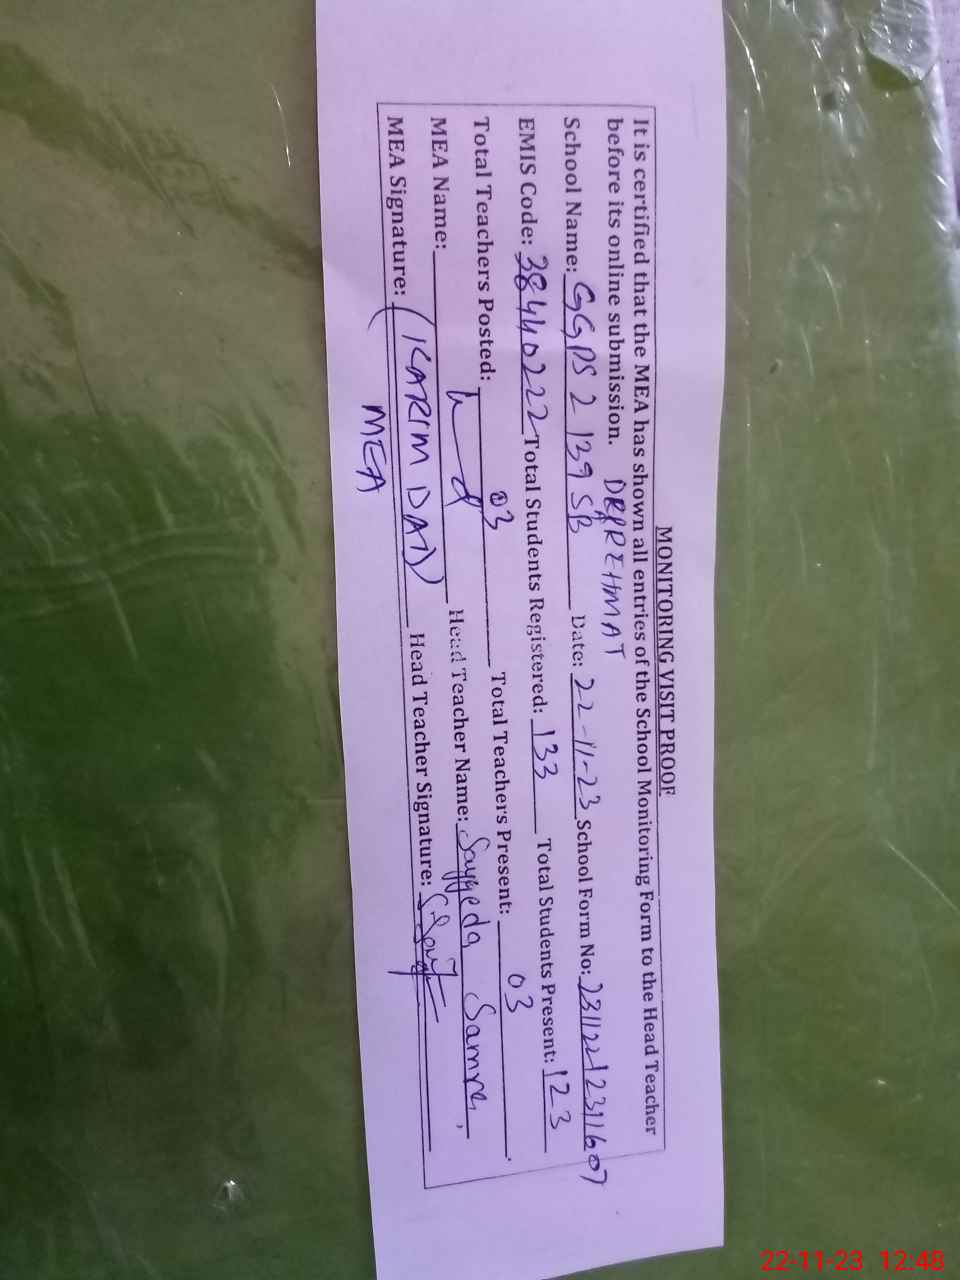 MONITORING VISIT PROOF
It is certified that the MEA has shown all entries of the School Monitoring Form to the Head Teacher
before its online submission. REHMAT
School Name: GGPS 2 139 SB Date: 22-11-23 School Form No:
EMIS Code: 38440222 Total Students Registered: 133 Total Students Present: 123
Total Teachers Posted: 03 Total Teachers Present: 03
MEA Name: Head Teacher Name: Sayyeda
MEA Signature: (KARIM DAD) Head Teacher Signature:
MEA
22-11-23 12:48